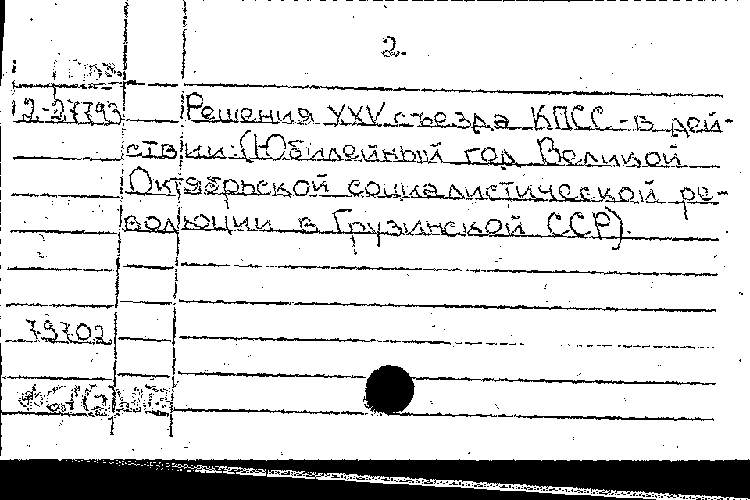 2.
12-27793 Решения XXV съезда КПСС - в дей-
ствии: (Юбилейный год Великой
Октябрьской социалистической ре-
волюции в Грузинской ССР).
79702